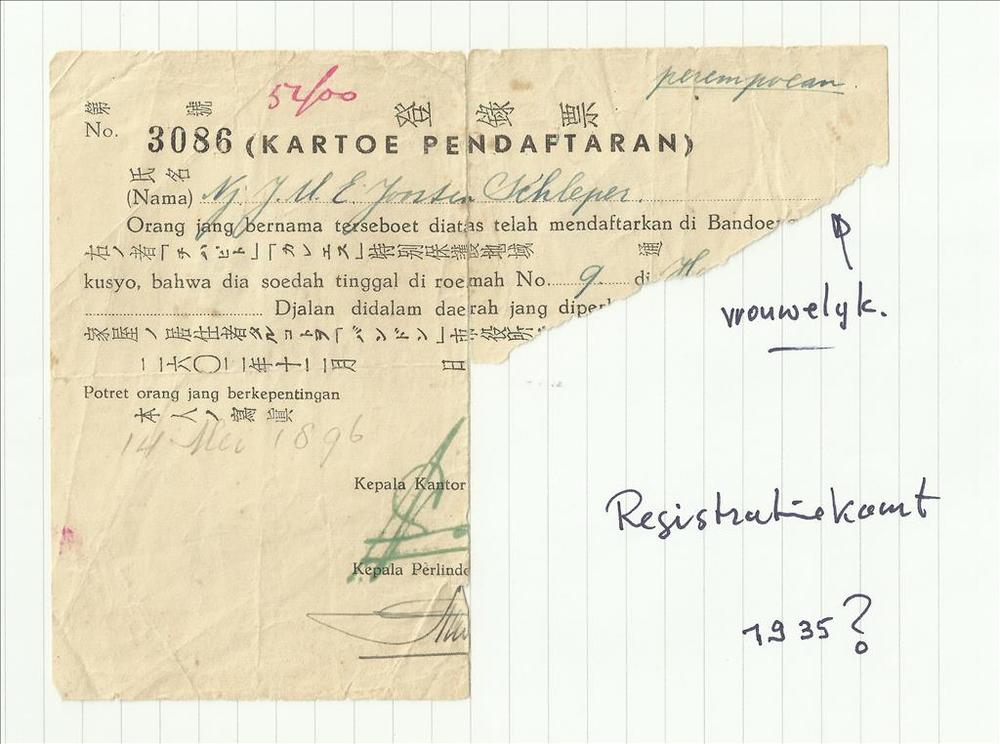 52/00
perempoean.
第 號 登錄票
No. 3086 (KARTOE PENDAFTARAN)
氏名
(Nama) Nj J. U. E. Jonsen Schleper.
Orang jang bernama terseboet diatas telah mendaftarkan di Bandoe
右ノ者「チハピト」「カレエス」特別保護地域 通
kusyo, bahwa dia soedah tinggal di roemah No. 9 di
Djalan didalam daerah jang diper
家屋ノ居住者タルコトヲ「バンドン」市役所
二六〇二年十二月 日
Potret orang jang berkepentingan
本人ノ寫眞
14 Mei 1896
Kepala Kantor
Kepala Perlinde
vrouwelyk.
Registratiekaart
1935?